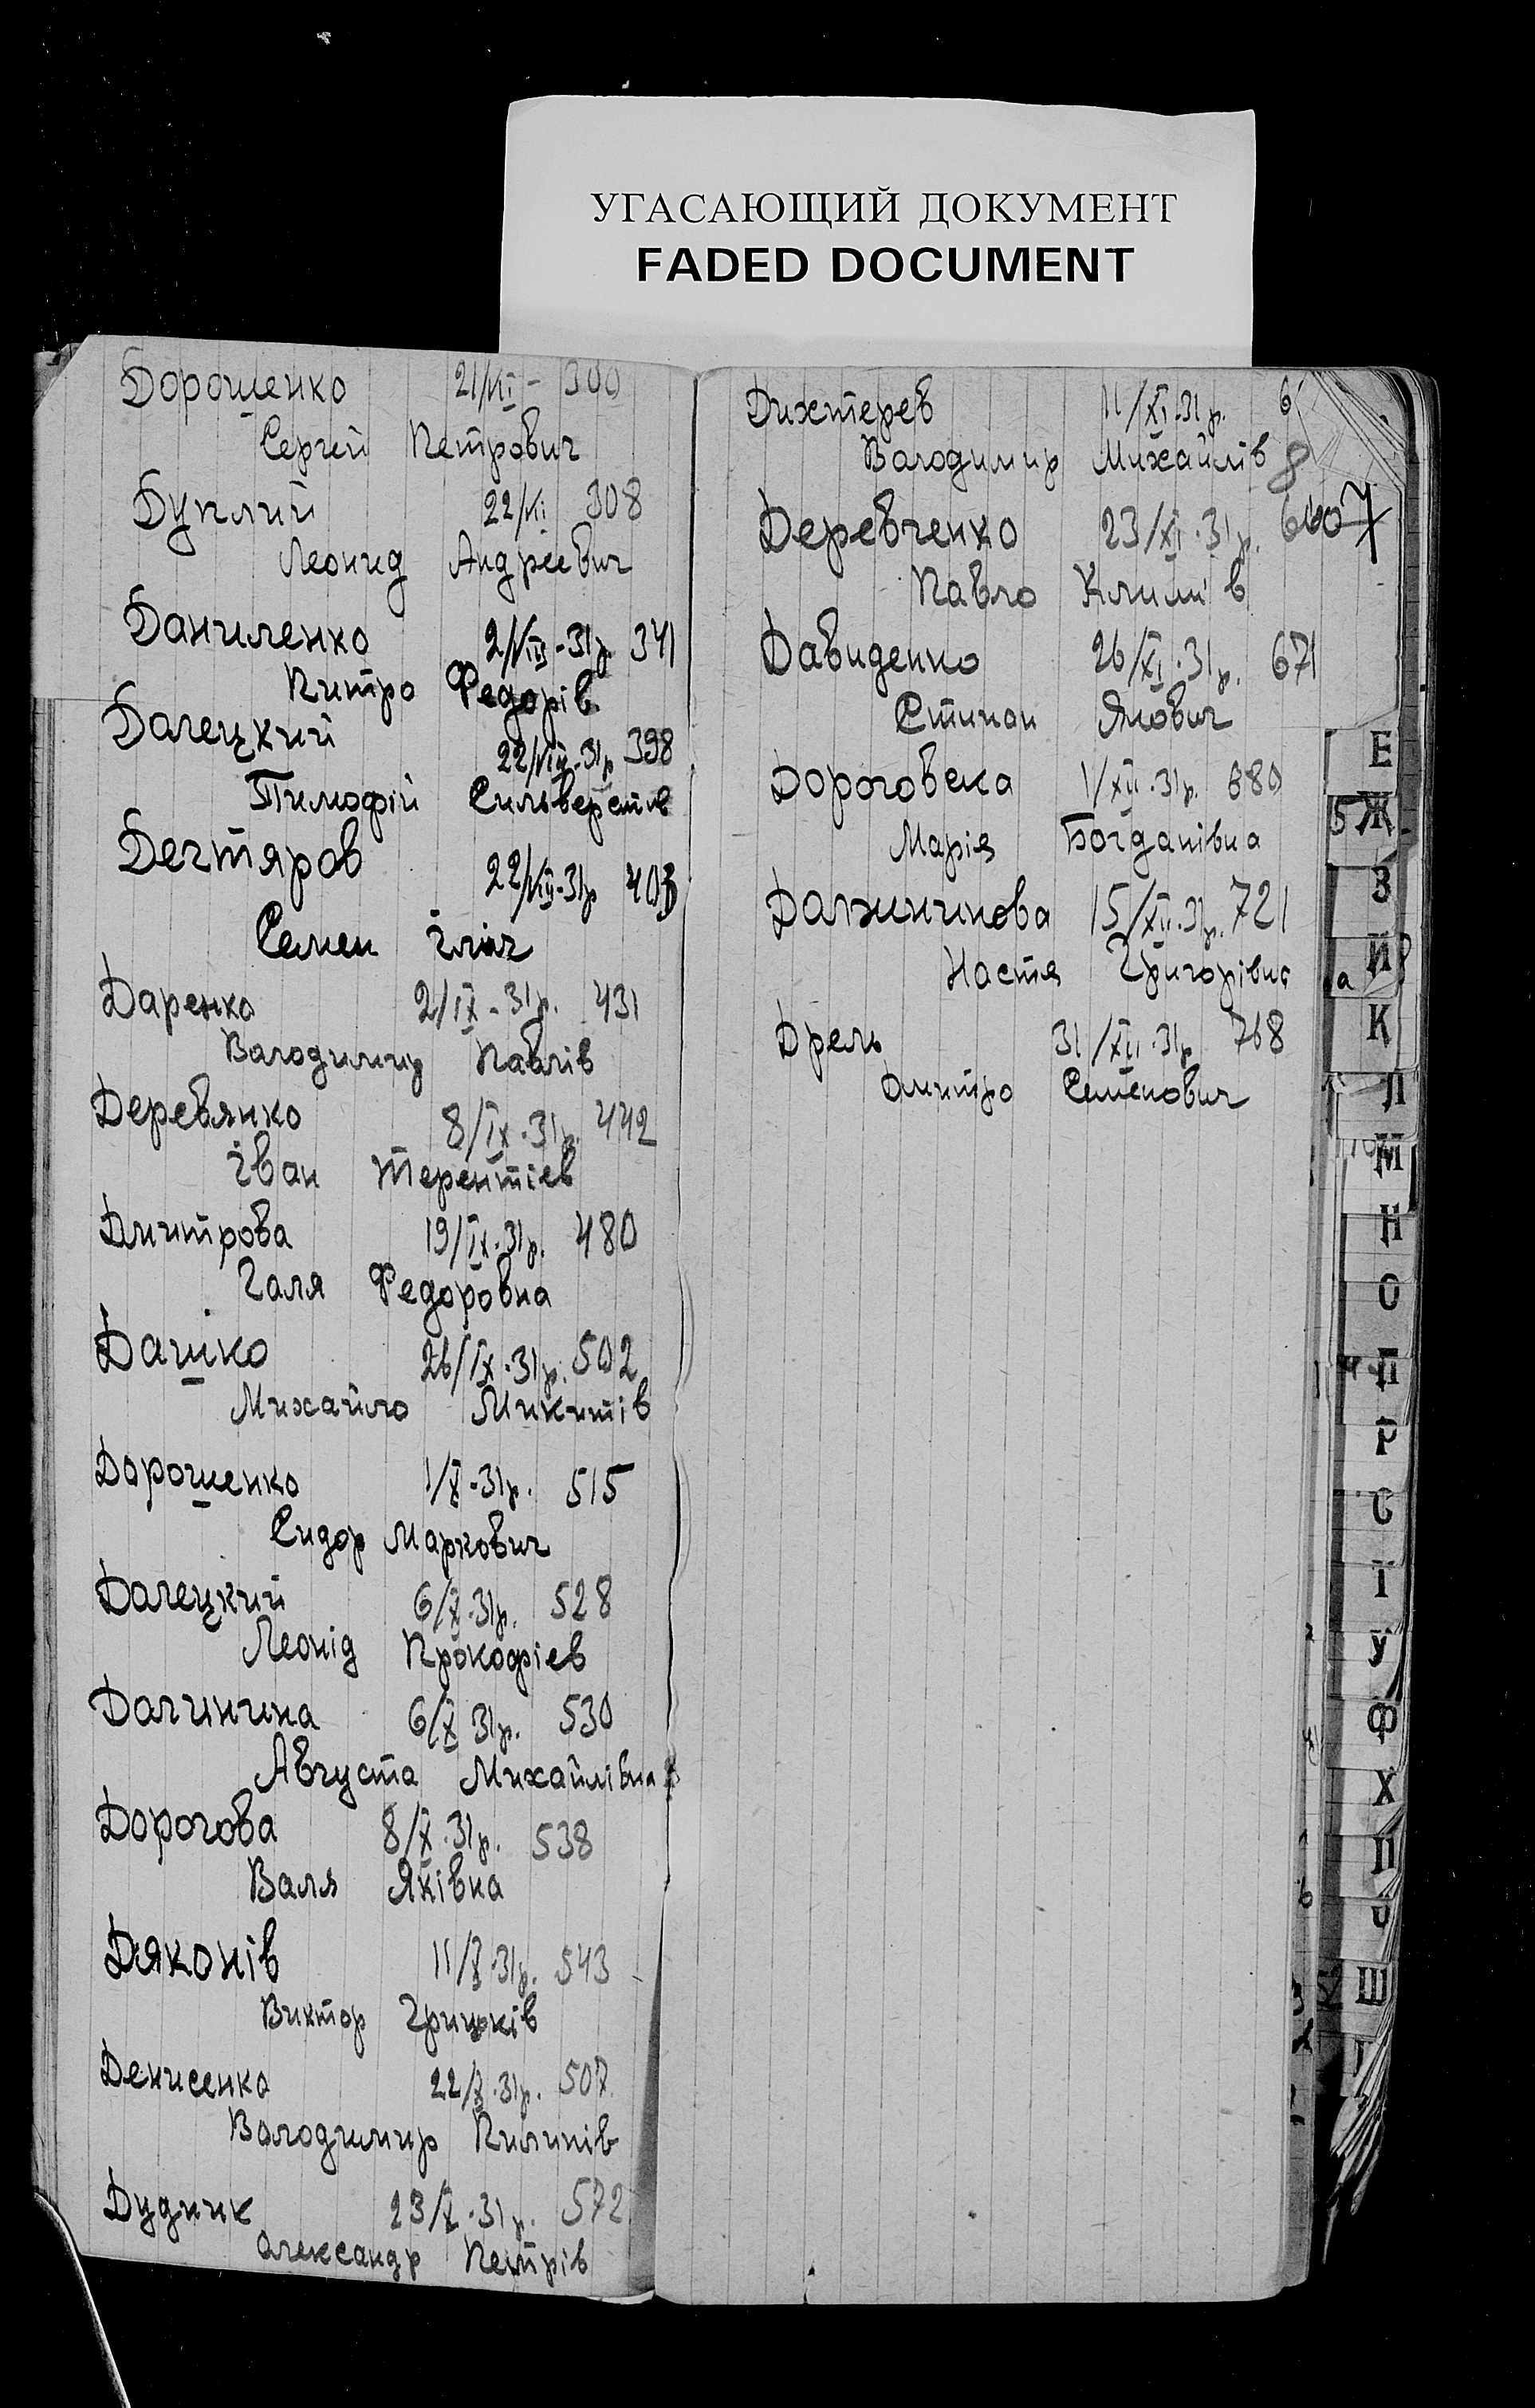 УГАСАЮЩИЙ ДОКУМЕНТ
FADED DOCUMENT
Дорошенко 21/VII - 300
Сергей Петрович
Дуплий 22/VII 308
Леонид Андрієвич
Даниленко 2/VIII-31р. 341
Питро Федорів
Далецкий 22/VIII-31р 398
Тимофій Сильверстів
Дегтяров 22/VIII-31р 403
Семен Ілліч
Даренко 2/IX-31р. 431
Володимир Павлів
Деревянко 8/IX-31р. 442
Іван Терентіев
Дмитрова 19/IX-31р. 480
Галя Федоровна
Дашко 26/IX-31р. 502
Михайло Микитів
Дорошенко 1/X-31р. 515
Сидор Маркович
Далецкий 6/X-31р. 528
Леонід Прокофіев
Далинина 6/X 31р. 530
Августа Михайлівна
Дорогова 8/X.31р. 538
Валя Яківна
Дяконів 11/X.31р. 543
Виктор Грицьків
Денисенко 22/X.31р.
Володимир Пилипів
Дудник 23/X.31р. 572
Олександр Петрів
Дихтерев 11/XI.31р. 6
Володимир Михайлів 8
Деревченко 23/XI.31р.
Павло Климів
Давиденко 26/XI.31р. 671
Степан Якович
Дороговска 1/XII.31р. 680
Марія Богданівна
Должникова 15/XII.31р. 721
Настя Григорівна
Дрель 31/XII.31р 768
Дмитро Семенович
Е
Ж
З
И
К
Л
М
Н
О
П
Р
С
Т
У
Ф
Х
Ш